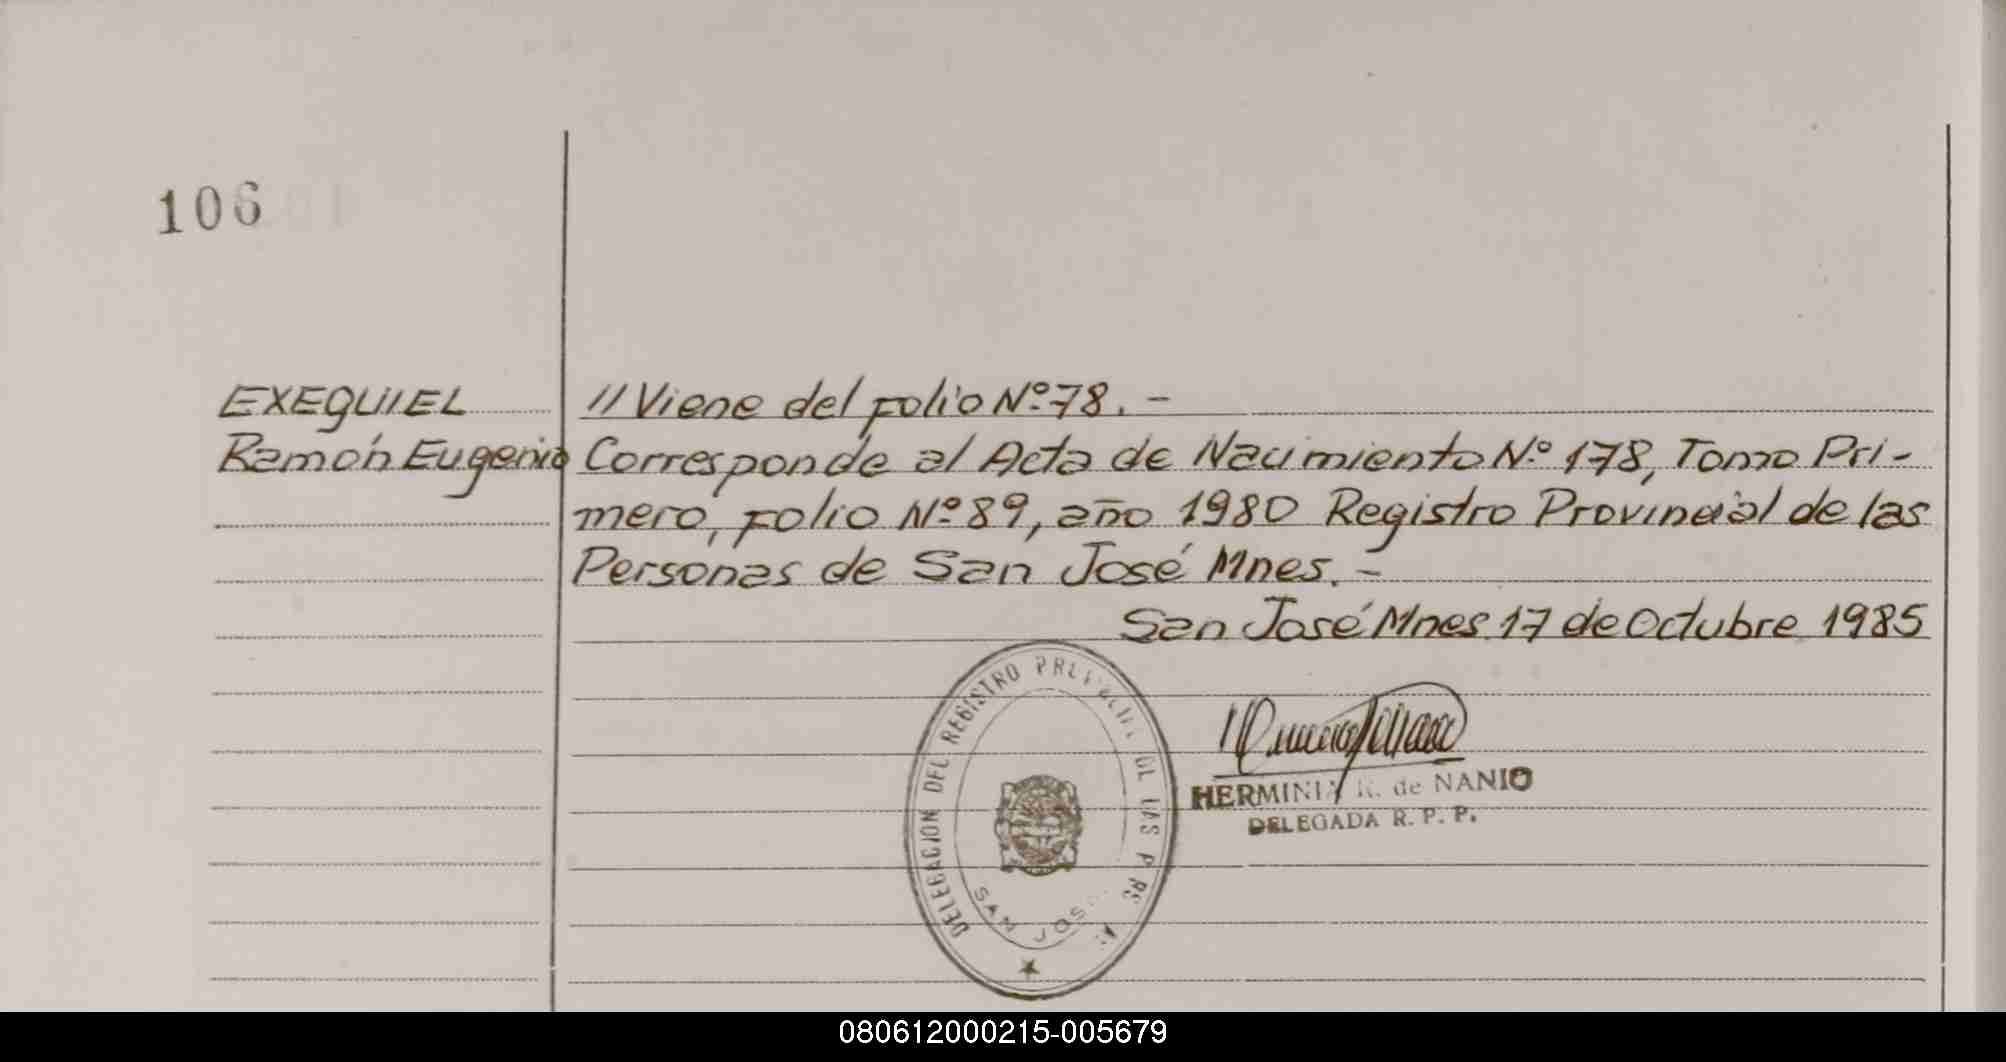 106
EXEQUIEL
Ramón Eugenio
// Viene del folio Nº 78. -
Corresponde al Acta de Nacimiento Nº 178, Tomo Pri-
mero, folio Nº 89, año 1980 Registro Provincial de las
Personas de San José Mnes. -
San José Mnes 17 de Octubre 1985
DELEGACION DEL REGISTRO DE LAS
SAN JOSE
HERMINIA K. de NANIO
DELEGADA R. P. P.
080612000215-005679